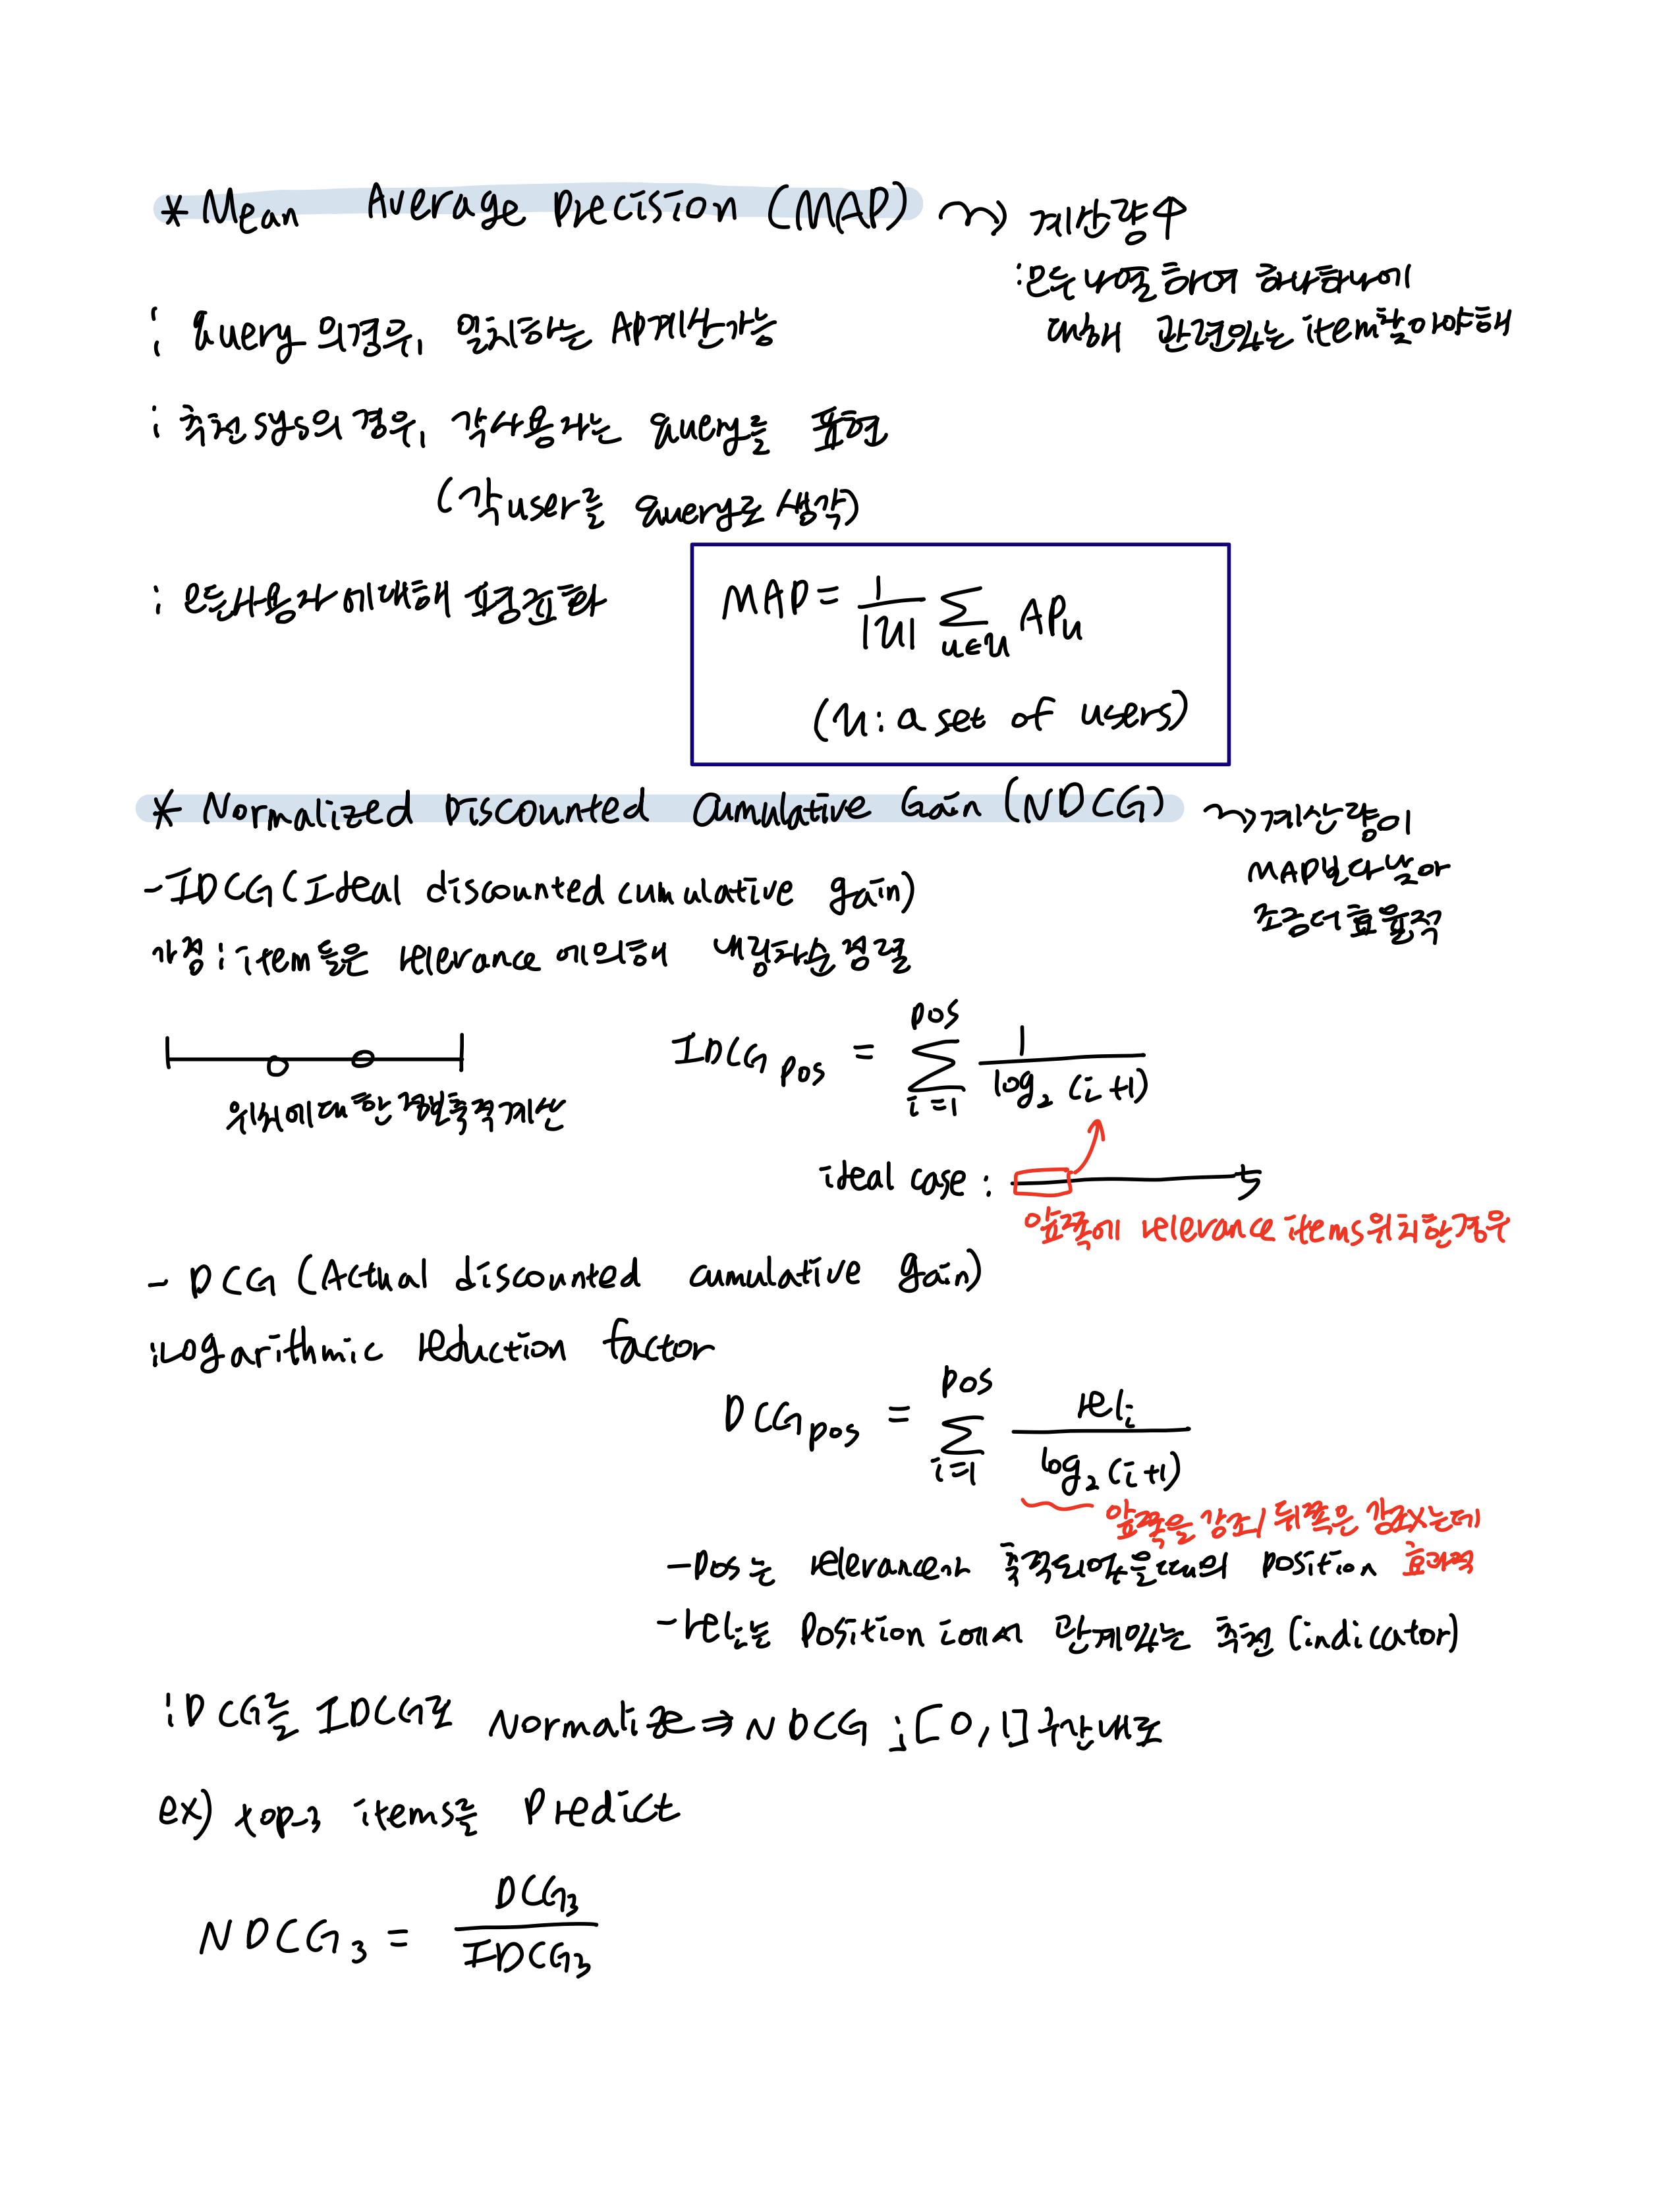 * Mean Average Precision (MAP) ~> 계산량↑
: 모두 나열하여 하나하나에
대해 관련있는 item찾아야해
: Query의경우, 일치하는 AP계산가능
: 추천sys의 경우, 각사용자는 Query를 표현
(각user를 Query로 생각)
: 모든사용자에대해 평균화
MAP = 1/|U| Σ_{u∈U} AP_u
(U: a set of users)
* Normalized Discounted Cumulative Gain (NDCG) ~> 계산량이
MAP보다낮아
조금더효율적
- IDCG (Ideal discounted cumulative gain)
가정: item들은 relevance에의해 내림차순정렬
IDCG_pos = Σ_{i=1}^{pos} 1/log₂(i+1)
위치에대한 정보축적계산
ideal case:
앞쪽에 relevance items위치한경우
- DCG (Actual discounted cumulative gain)
: Logarithmic reduction factor
DCG_pos = Σ_{i=1}^{pos} rel_i/log₂(i+1)
앞쪽을 강조/ 뒤쪽은 강조X는데
효과적
- pos는 relevance가 축적되었을때의 position
- rel_i는 position i에서 관계있는 추천 (indicator)
: DCG를 IDCG로 Normalize ⇒ NDCG ; [0, 1] 구간내로
ex) top-3 items를 Predict
NDCG₃ = DCG₃/IDCG₃